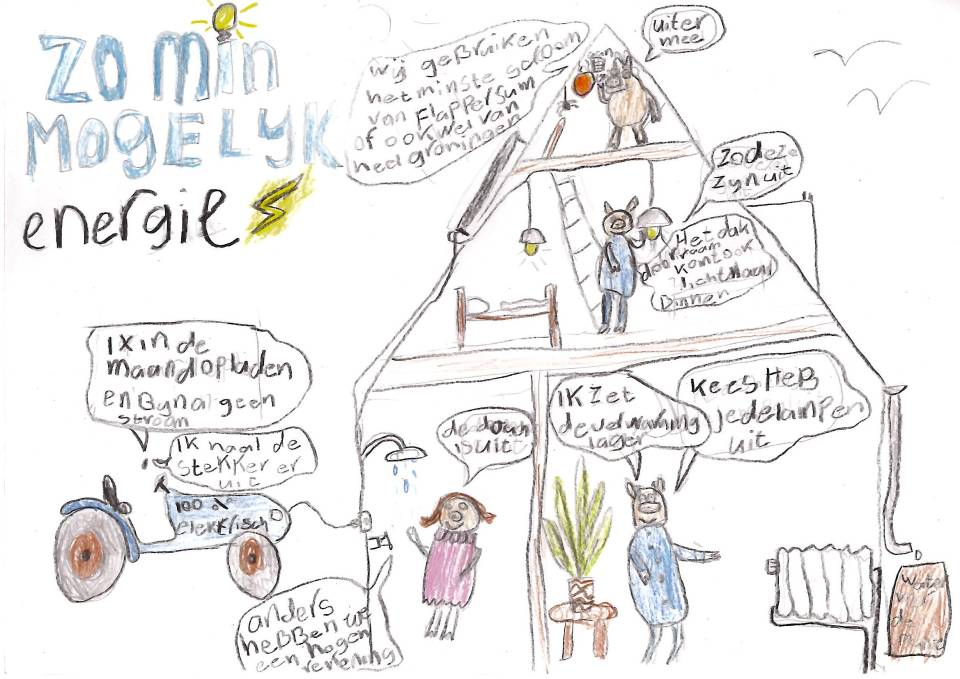 ZO MIN
MOGELYK
energie
wij geBruiken
het minste stroom
van Flappersum
of ook wel van
heel groningen
uiter
mee
zo deze
zyn uit
Het dak
door raam
komt ook
licht naar
Binnen
1 x in de
maand opladen
en Bynal geen
stroom
IK haal de
stekker er
uit
100 %
elektrisch
de douch
is uit
IK zet
de verwarming
lager
Kees HeB
je de lampen
uit
anders
heBBen we
een hogen
rekening
water